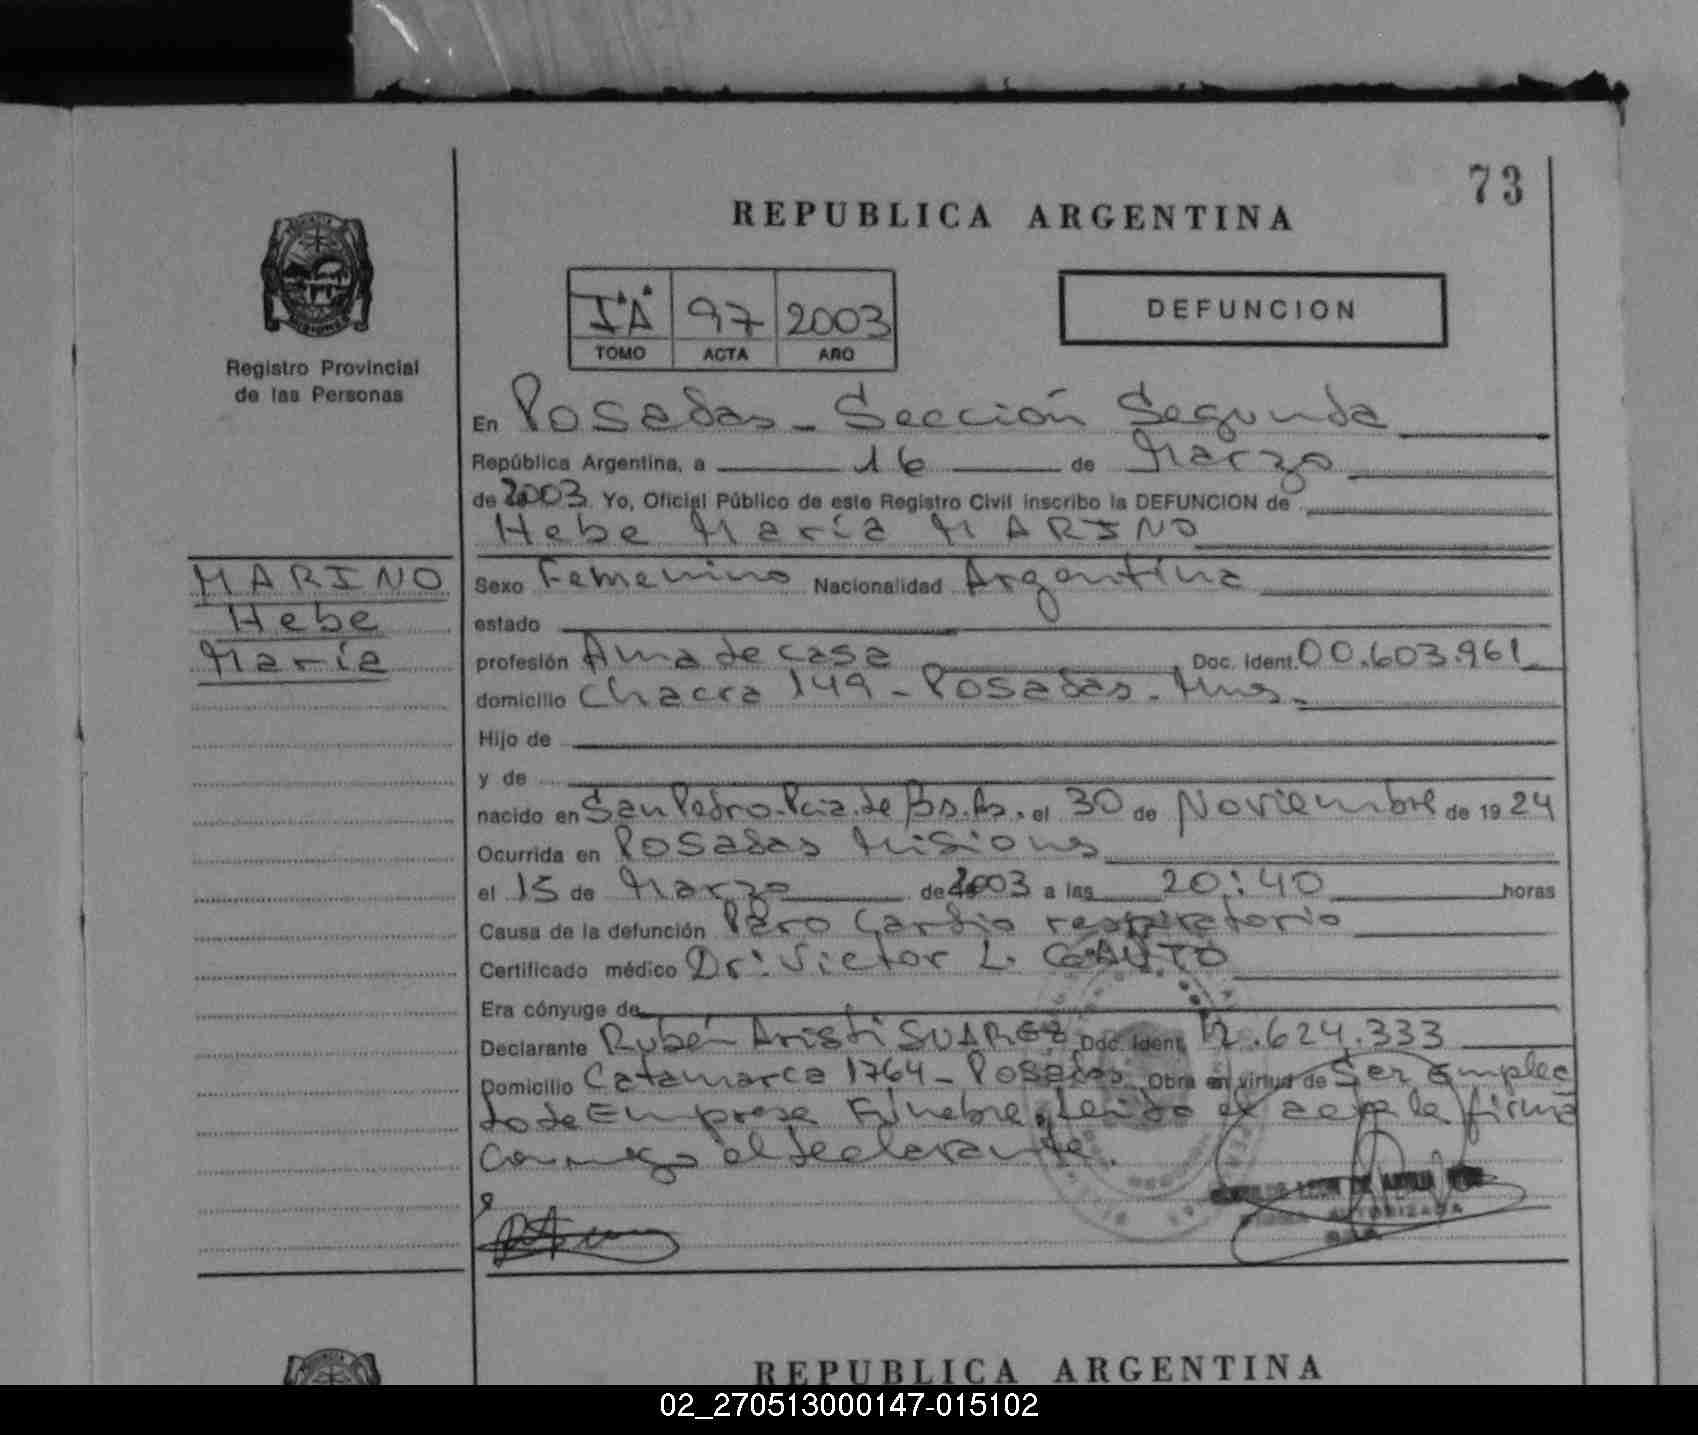 73
REPUBLICA ARGENTINA
IªA 97 2003
TOMO ACTA AÑO
DEFUNCION
Registro Provincial
de las Personas
En Posadas - Sección Segunda
República Argentina, a 16 de Marzo
de 2003 Yo, Oficial Público de este Registro Civil inscribo la DEFUNCION de
Hebe María MARINO
MARINO
Hebe
María
Sexo Femenino Nacionalidad Argentina
estado
profesión Ama de casa Doc. Ident. 00.603.961
domicilio Chacra 149 - Posadas - Mnes.
Hijo de
y de
nacido en San Pedro-Pcia. de Bs. As., el 30 de Noviembre de 1924
Ocurrida en Posadas Misiones
el 15 de Marzo de 2003 a las 20:40 horas
Causa de la defunción Paro Cardio respiratorio
Certificado médico Dr: Victor L. COAUTO
Era cónyuge de
Declarante Rubén Aristi SUAREZ Doc. Ident. 12.624.333
Domicilio Catamarca 1764 - Posadas Obra en virtud de Ser emplea
do de Empresa Fúnebre, leída el acta la firma
conmigo el declarante.
FIRMA AUTORIZADA
REPUBLICA ARGENTINA
02_270513000147-015102